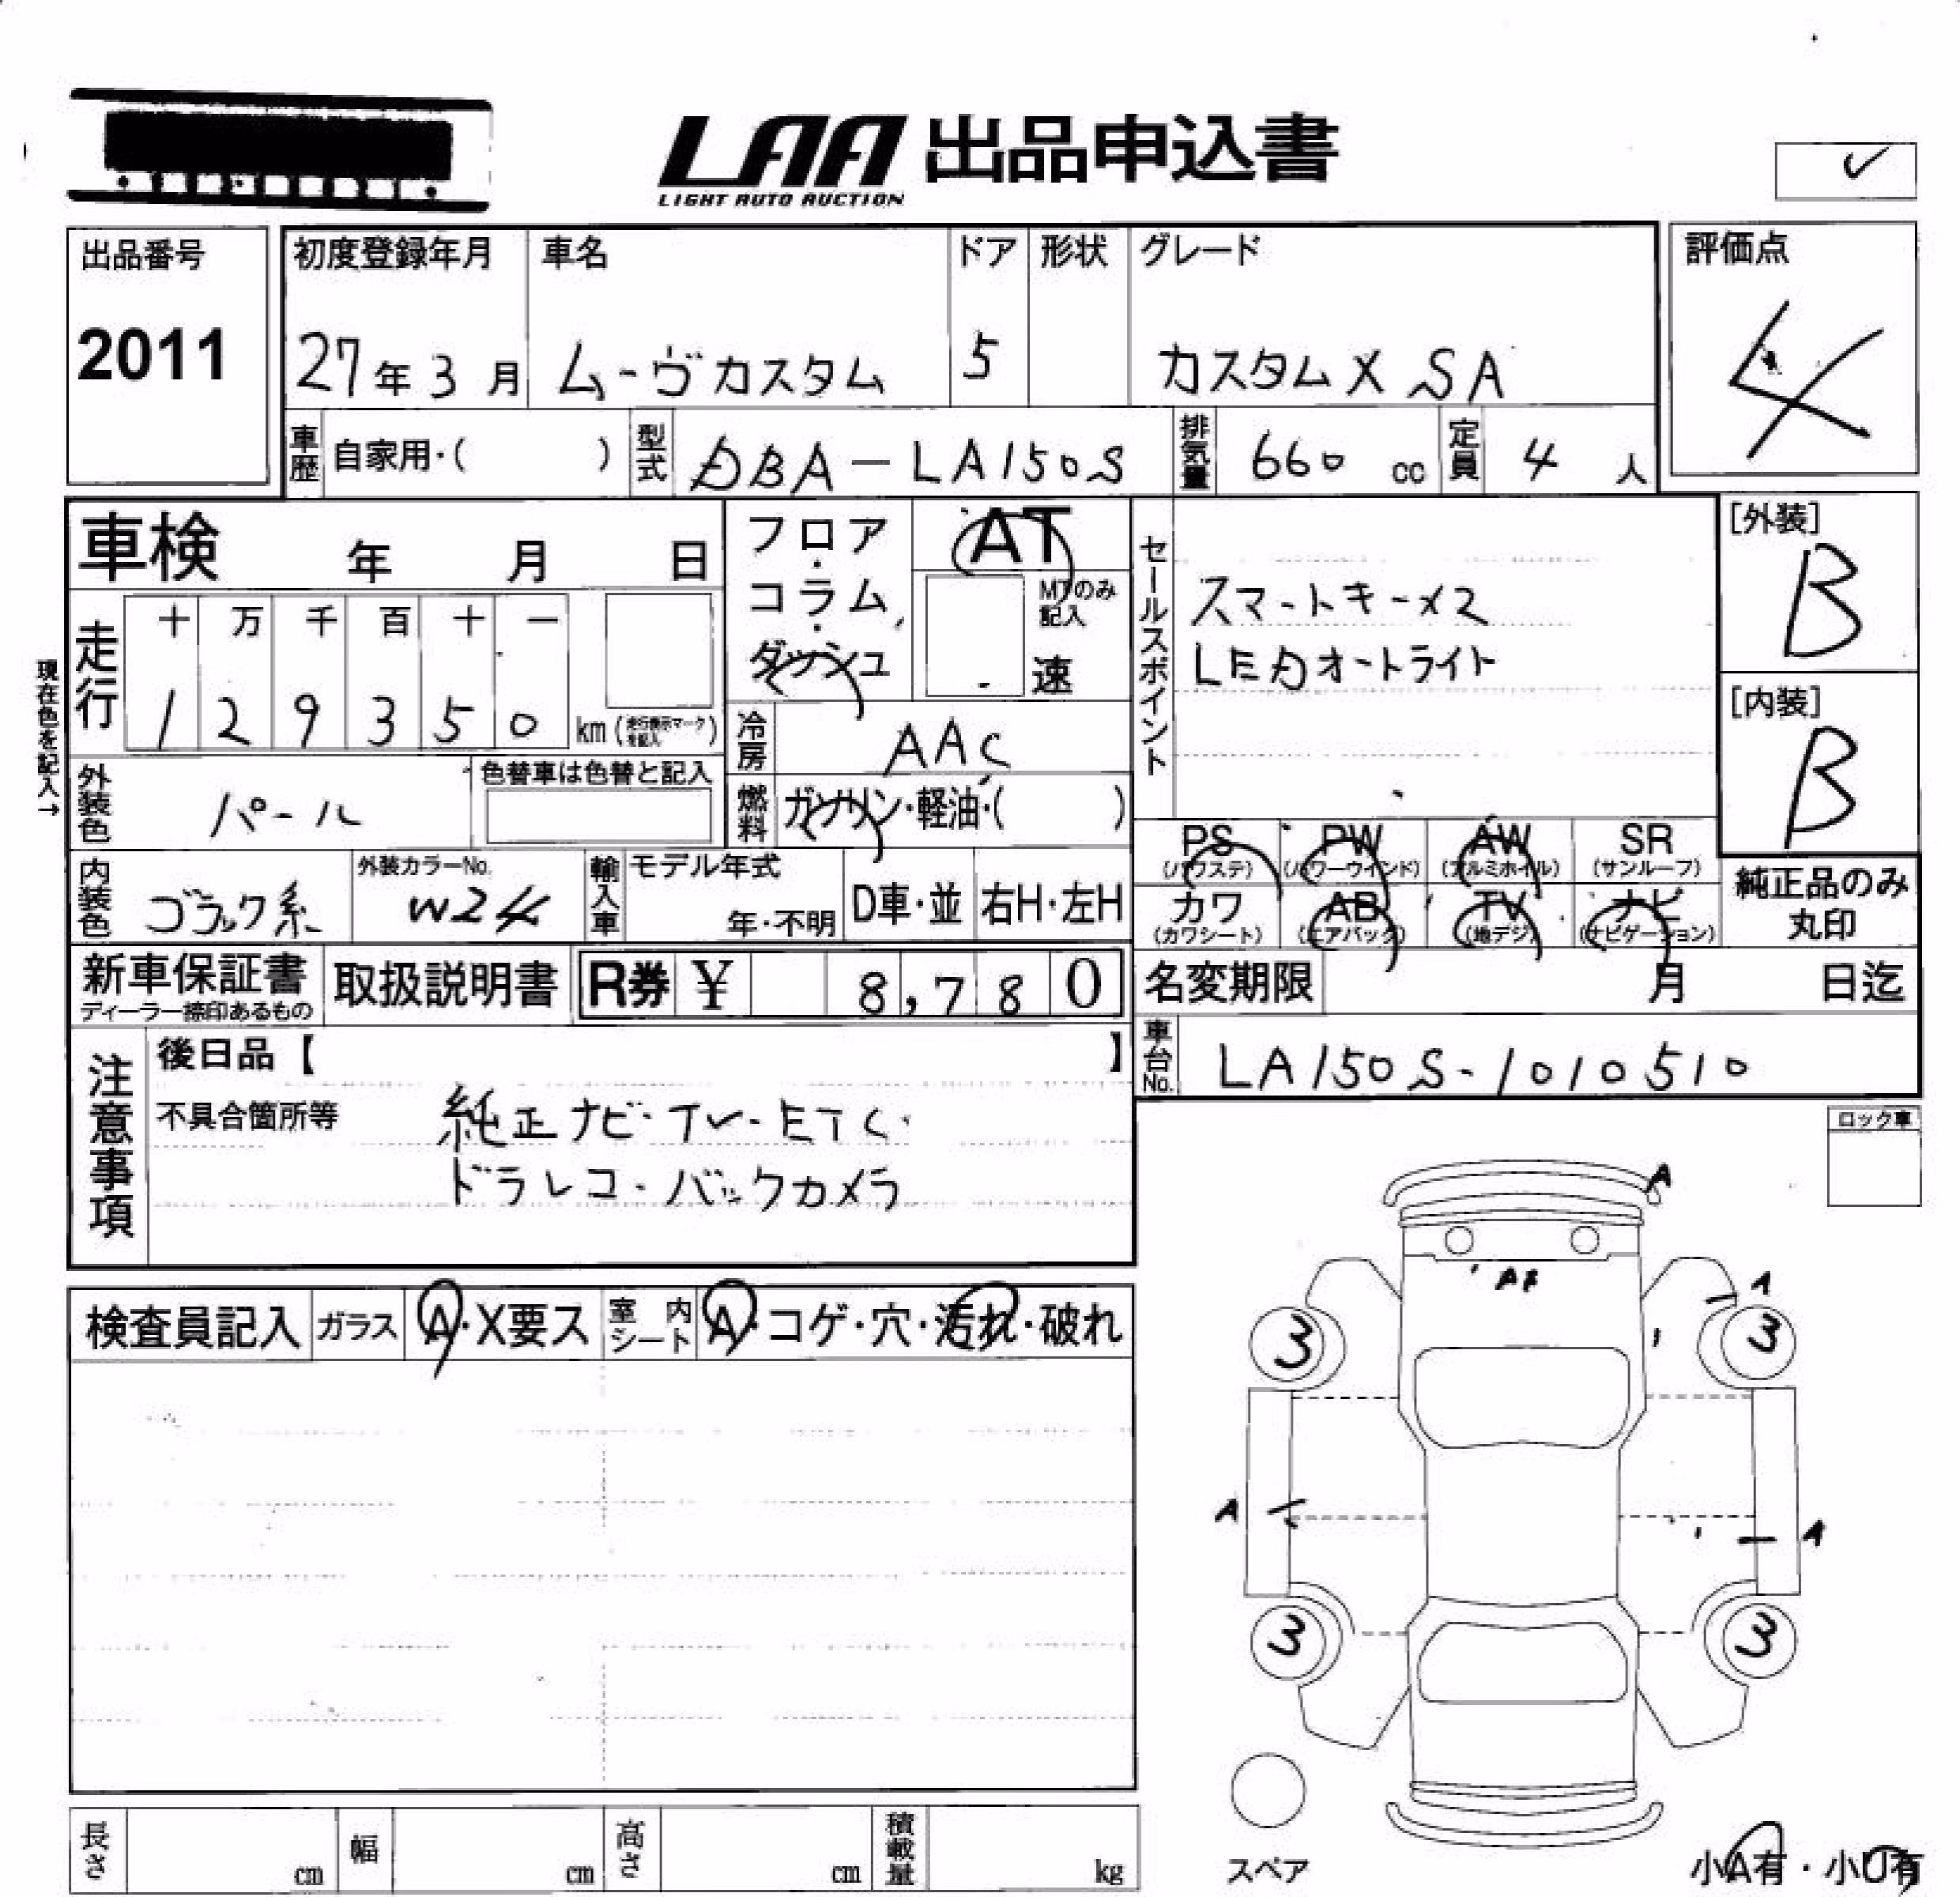 LAA 出品申込書
LIGHT AUTO AUCTION
出品番号
2011
初度登録年月 車名 ドア 形状 グレード
27年3月 ムーヴカスタム 5 カスタムX SA
評価点
4
車歴 自家用・( ) 型式 DBA-LA150S 排気量 660 cc 定員 4 人
車検 年 月 日
フロア・コラム・ダッシュ
AT
MTのみ記入
速
セールスポイント
スマートキー×2
LEDオートライト
[外装]
B
[内装]
B
現在色を記入→
走行 十 万 千 百 十 一
1 2 9 3 5 0 km (走行表示マークを記入)
冷房 AAC
外装色 パール 色替車は色替と記入
燃料 ガソリン・軽油・( )
PS (パワステ) PW (パワーウインド) AW (アルミホイル) SR (サンルーフ)
カワ (カワシート) AB (エアバック) TV (地デジ) ナビ (ナビゲーション)
純正品のみ丸印
内装色 ブラック系 外装カラーNo. W24 輸入車 モデル年式 年・不明 D車・並 右H・左H
新車保証書 取扱説明書 R券 ¥ 8,780
ディーラー捺印あるもの
名変期限 月 日迄
車台No. LA150S-1010510
注意事項
後日品【 】
不具合箇所等 純正ナビ・TV・ETC・
ドラレコ・バックカメラ
ロック車
検査員記入 ガラス A・X要ス 室内シート A・コゲ・穴・汚れ・破れ
A
A
3 3
A A
3 3
スペア
小A有・小U有
長さ cm 幅 cm 高さ cm 積載量 kg